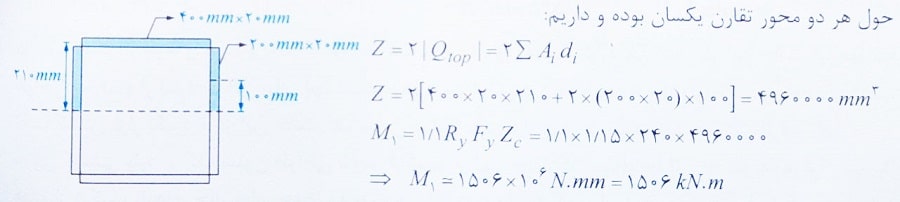 حول هر دو محور تقارن یکسان بوده و داریم:
۴۰۰mm×۲۰mm
۲۰۰mm×۲۰mm
۲۱۰mm
۱۰۰mm
Z = ۲|Q_top| = ۲ ∑ A_i d_i
Z = ۲[۴۰۰×۲۰×۲۱۰+۲×(۲۰۰×۲۰)×۱۰۰] = ۴۹۶۰۰۰۰ mm^۳
M_۱ = ۱/۱R_y F_y Z_c = ۱/۱×۱/۱۵×۲۴۰×۴۹۶۰۰۰۰
⇒ M_۱ = ۱۵۰۶×۱۰^۶ N.mm = ۱۵۰۶ kN.m